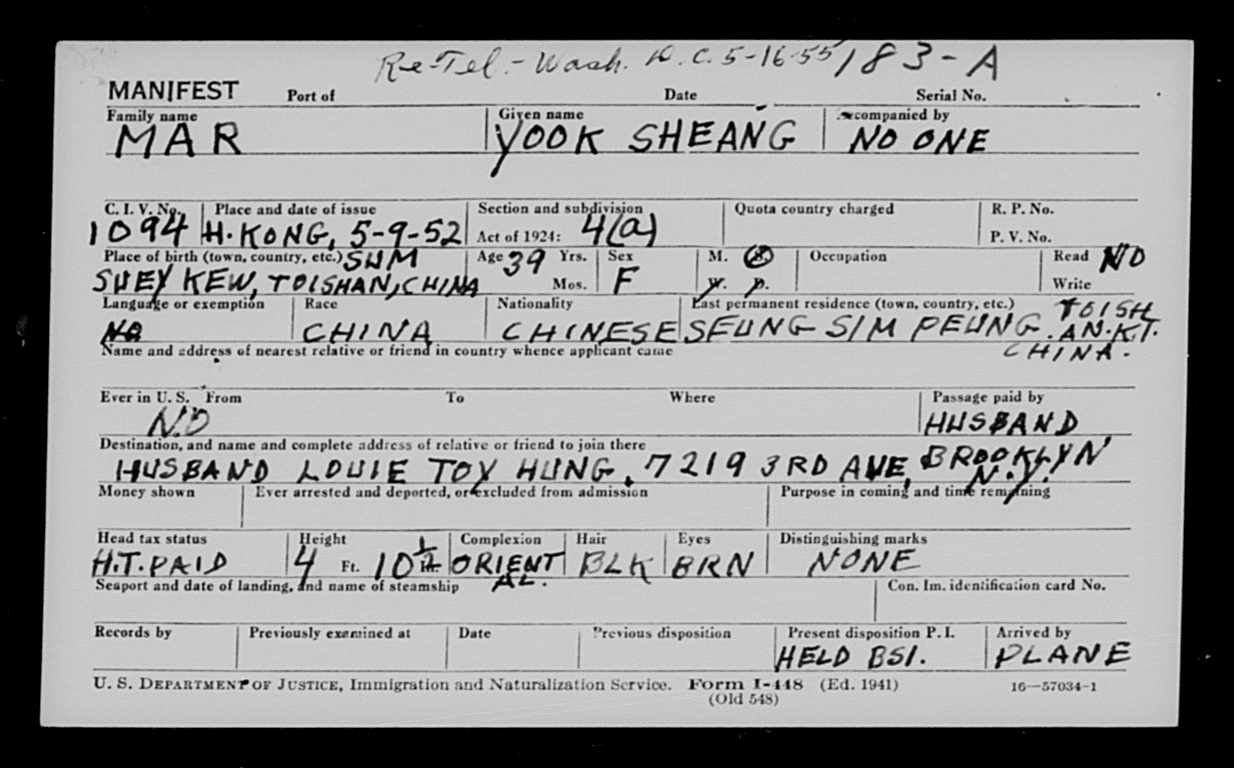 Re-Tel.- Wash. D.C. 5-16-55 183-A
MANIFEST Port of Date Serial No.
Family name Given name Accompanied by
MAR YOOK SHEANG NO ONE
C. I. V. No. Place and date of issue Section and subdivision Quota country charged R. P. No.
1094 H. KONG, 5-9-52 Act of 1924: 4(a) P. V. No.
Place of birth (town, country, etc.) SUM Age 39 Yrs. Sex M. S. Occupation Read NO
SUEY KEW, TOISHAN, CHINA Mos. F W. D. Write
Language or exemption Race Nationality Last permanent residence (town, country, etc.) TOISH
NO CHINA CHINESE SEUNG SIM PEUNG. AN. K.T.
Name and address of nearest relative or friend in country whence applicant came CHINA.
Ever in U. S. From To Where Passage paid by
NO HUSBAND
Destination, and name and complete address of relative or friend to join there
HUSBAND LOUIE TOY HUNG, 7219 3RD AVE, BROOKLYN N.Y.
Money shown Ever arrested and deported, or excluded from admission Purpose in coming and time remaining
Head tax status Height Complexion Hair Eyes Distinguishing marks
H.T. PAID 4 Ft. 10 1/2 In. ORIENT BLK BRN NONE
Seaport and date of landing, and name of steamship AL. Con. Im. identification card No.
Records by Previously examined at Date Previous disposition Present disposition P. I. Arrived by
HELD BSI. PLANE
U. S. DEPARTMENT OF JUSTICE, Immigration and Naturalization Service. Form I-448 (Ed. 1941) 16—57034-1
(Old 548)